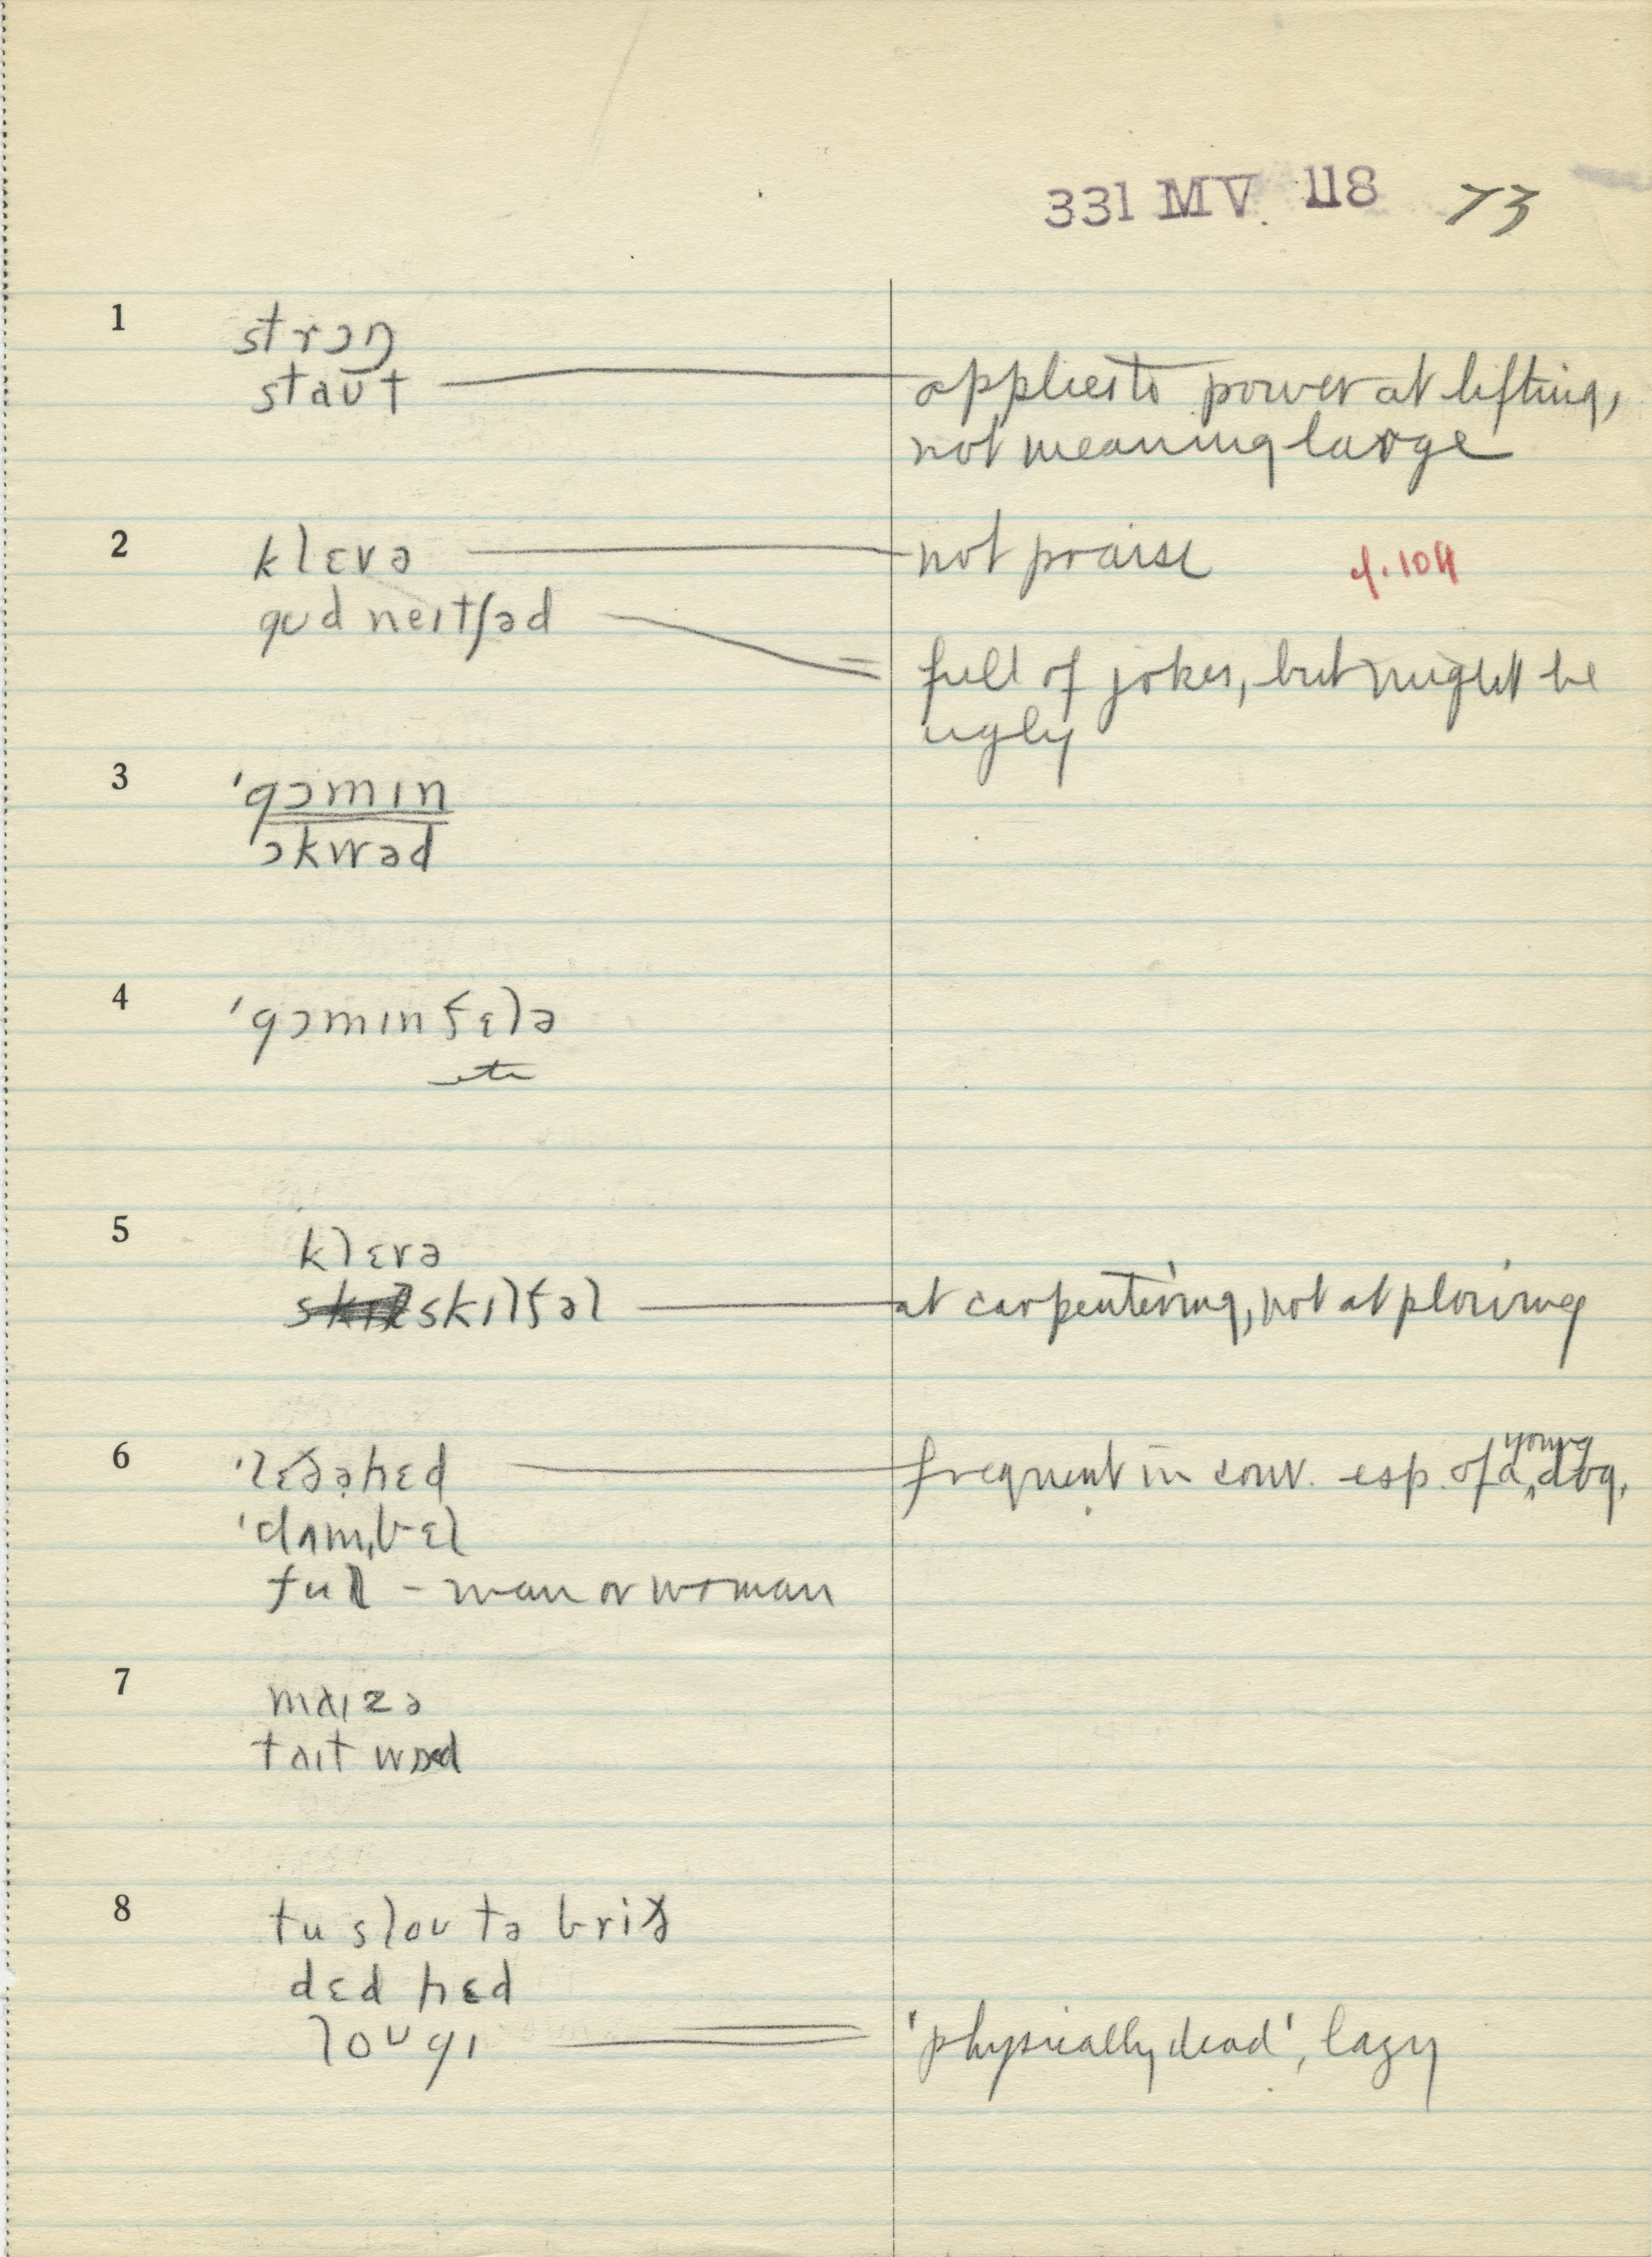 331 MV 118 73
1 strɔŋ
staʊt applies to power at lifting,
not meaning large
2 klɛvə not praise cf. 104
gʊd neɪtʃəd full of jokes, but might be
ugly
3 'gɔmɪn
'ɔkwəd
4 'gɔmɪn fɛlə
etc
5 klɛvə
skɪlfəl at carpentering, not at plowing
6 'lɛðəhɛd frequent in conv. esp. of a young dog.
'dʌmˌbɛl
ful - man or woman
7 maɪzə
taɪt wɒd
8 tu sloʊ tə brið
dɛd hɛd
loʊgɪ 'physically dead', lazy